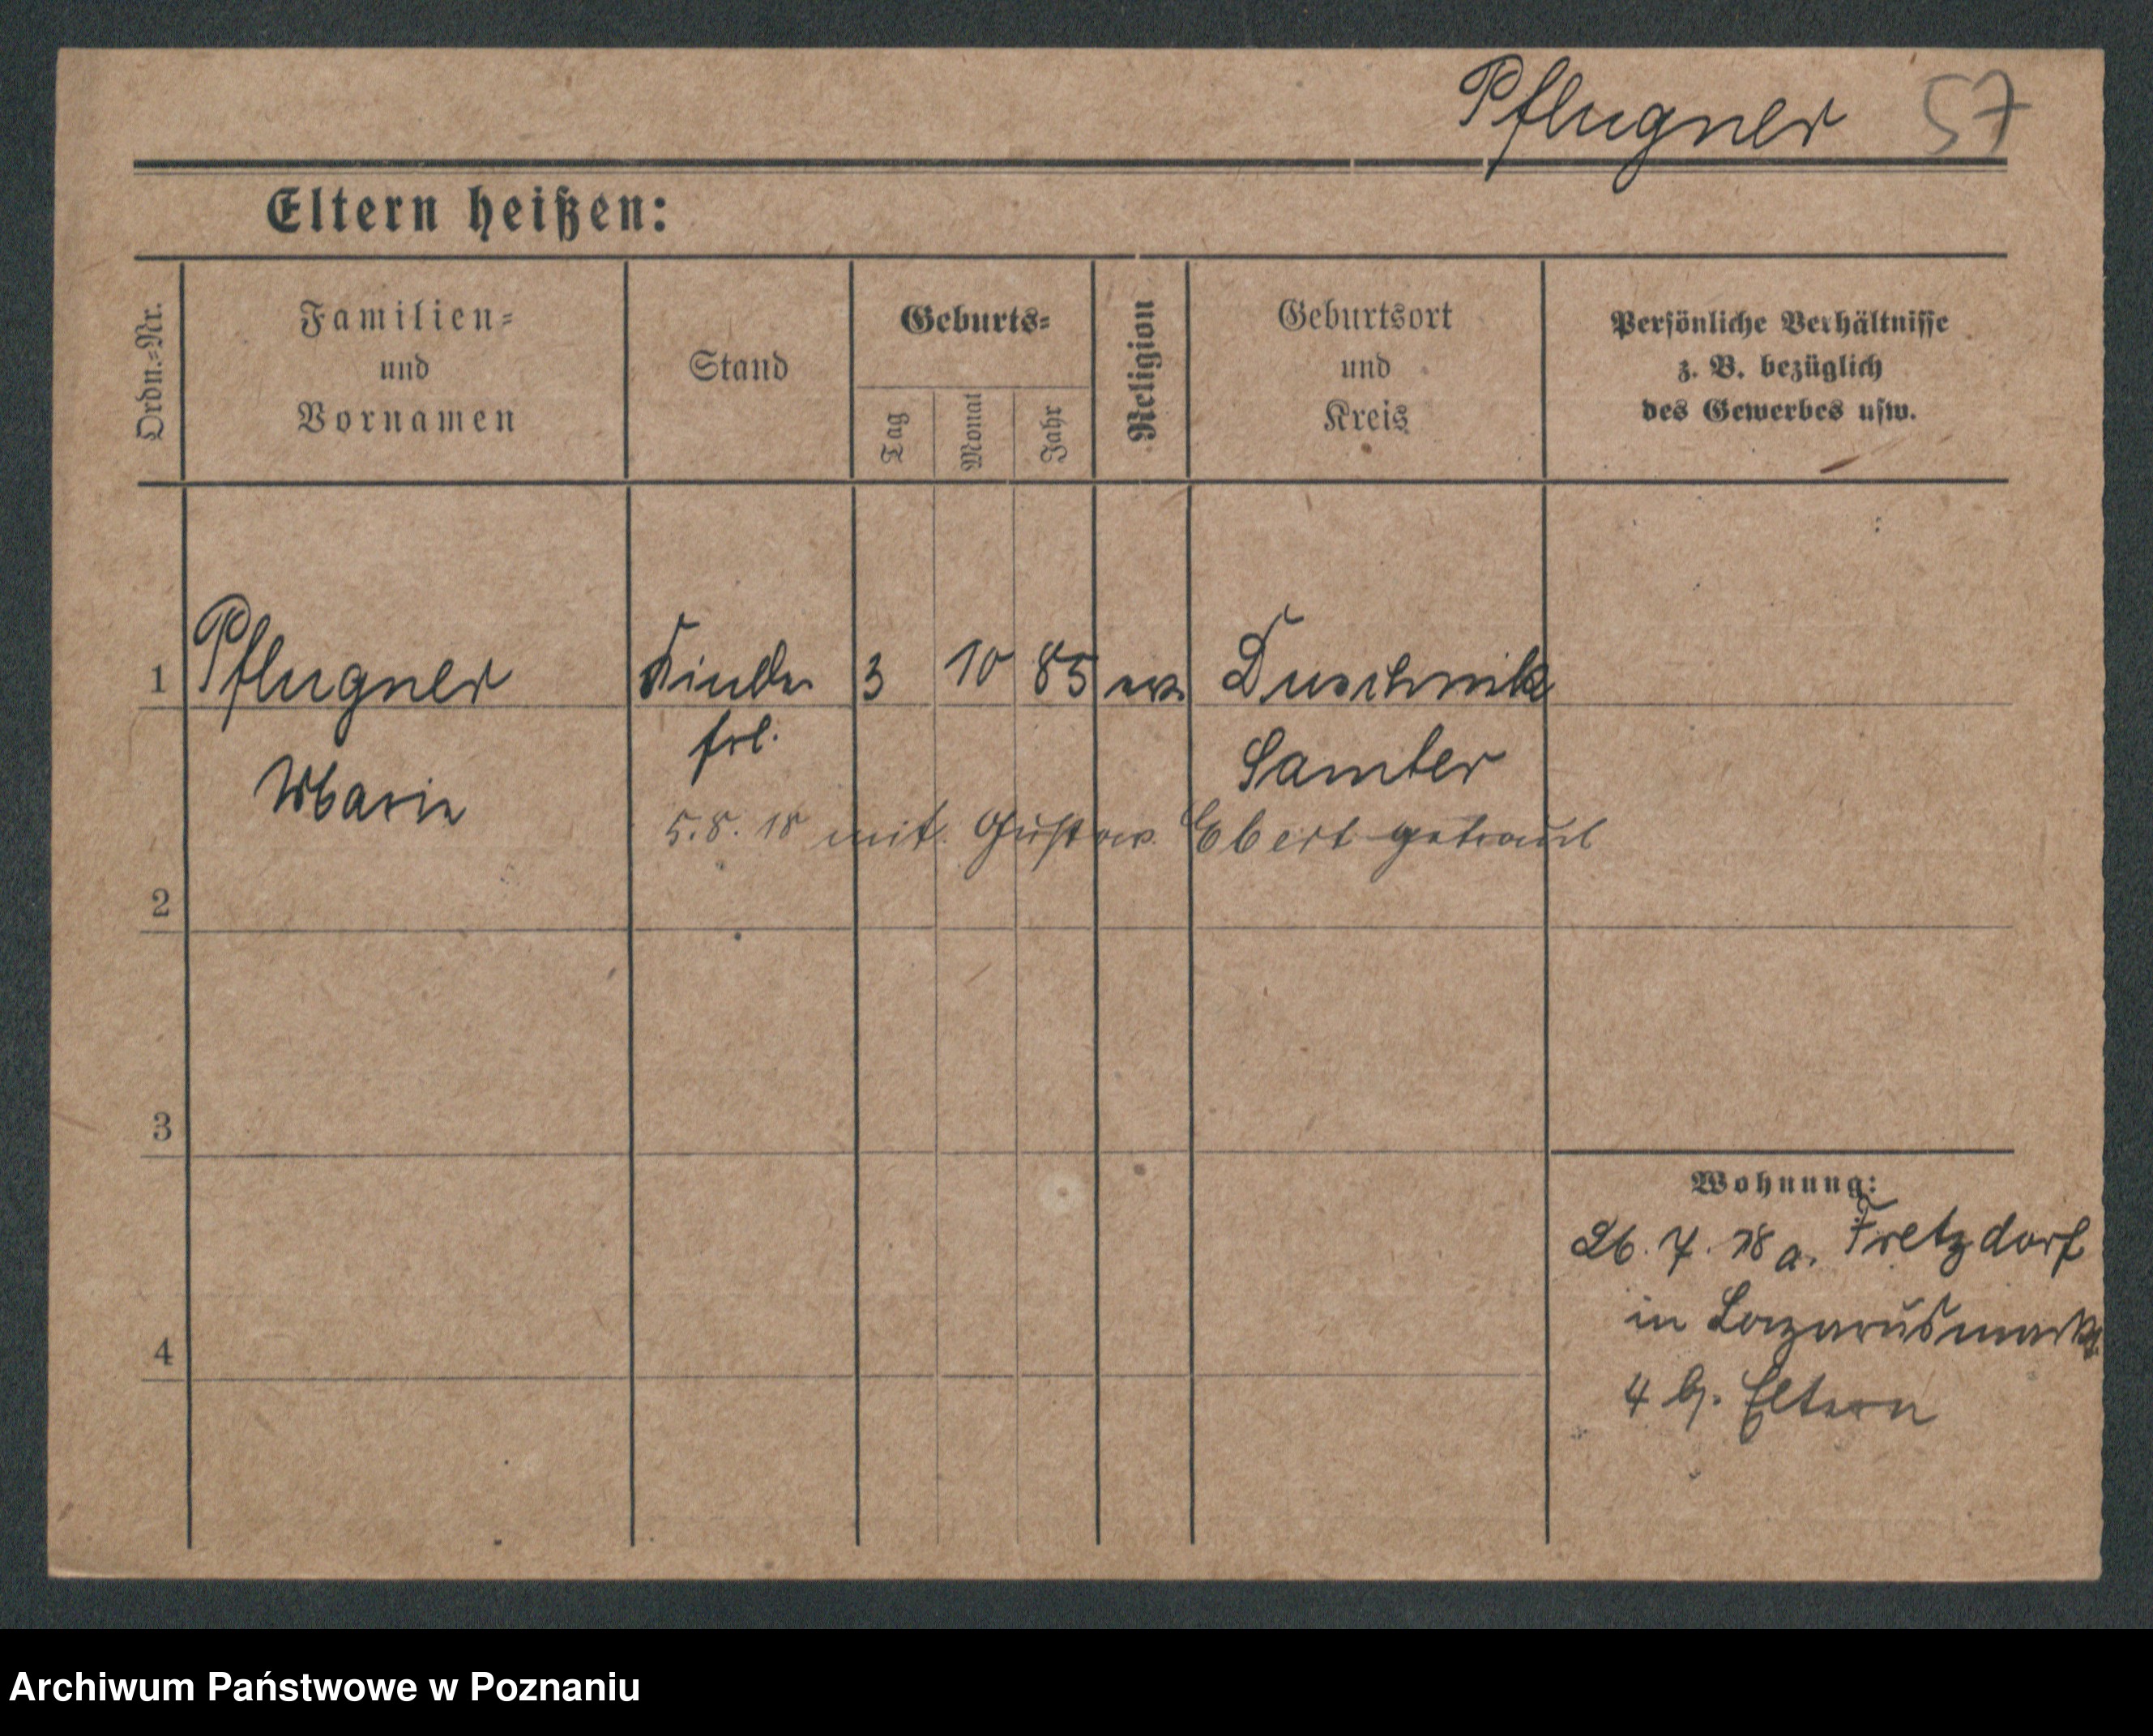 Pflugner 57
Eltern heißen:
Ordn.-Nr.
Familien-
und
Vornamen
Stand
Geburts-
Tag
Monat
Jahr
Religion
Geburtsort
und
Kreis
Persönliche Verhältnisse
z. B. bezüglich
des Gewerbes usw.
1 Pflugner Kinder 3 10 85 ev. Duschnik
frl. Samter
Marie
5.8.18 mit Gustav Ebert getraut
2
3
4
Wohnung:
26.7.18 a. Fretzdorf
in Lazarusmarkt
4 b. Eltern
Archiwum Państwowe w Poznaniu